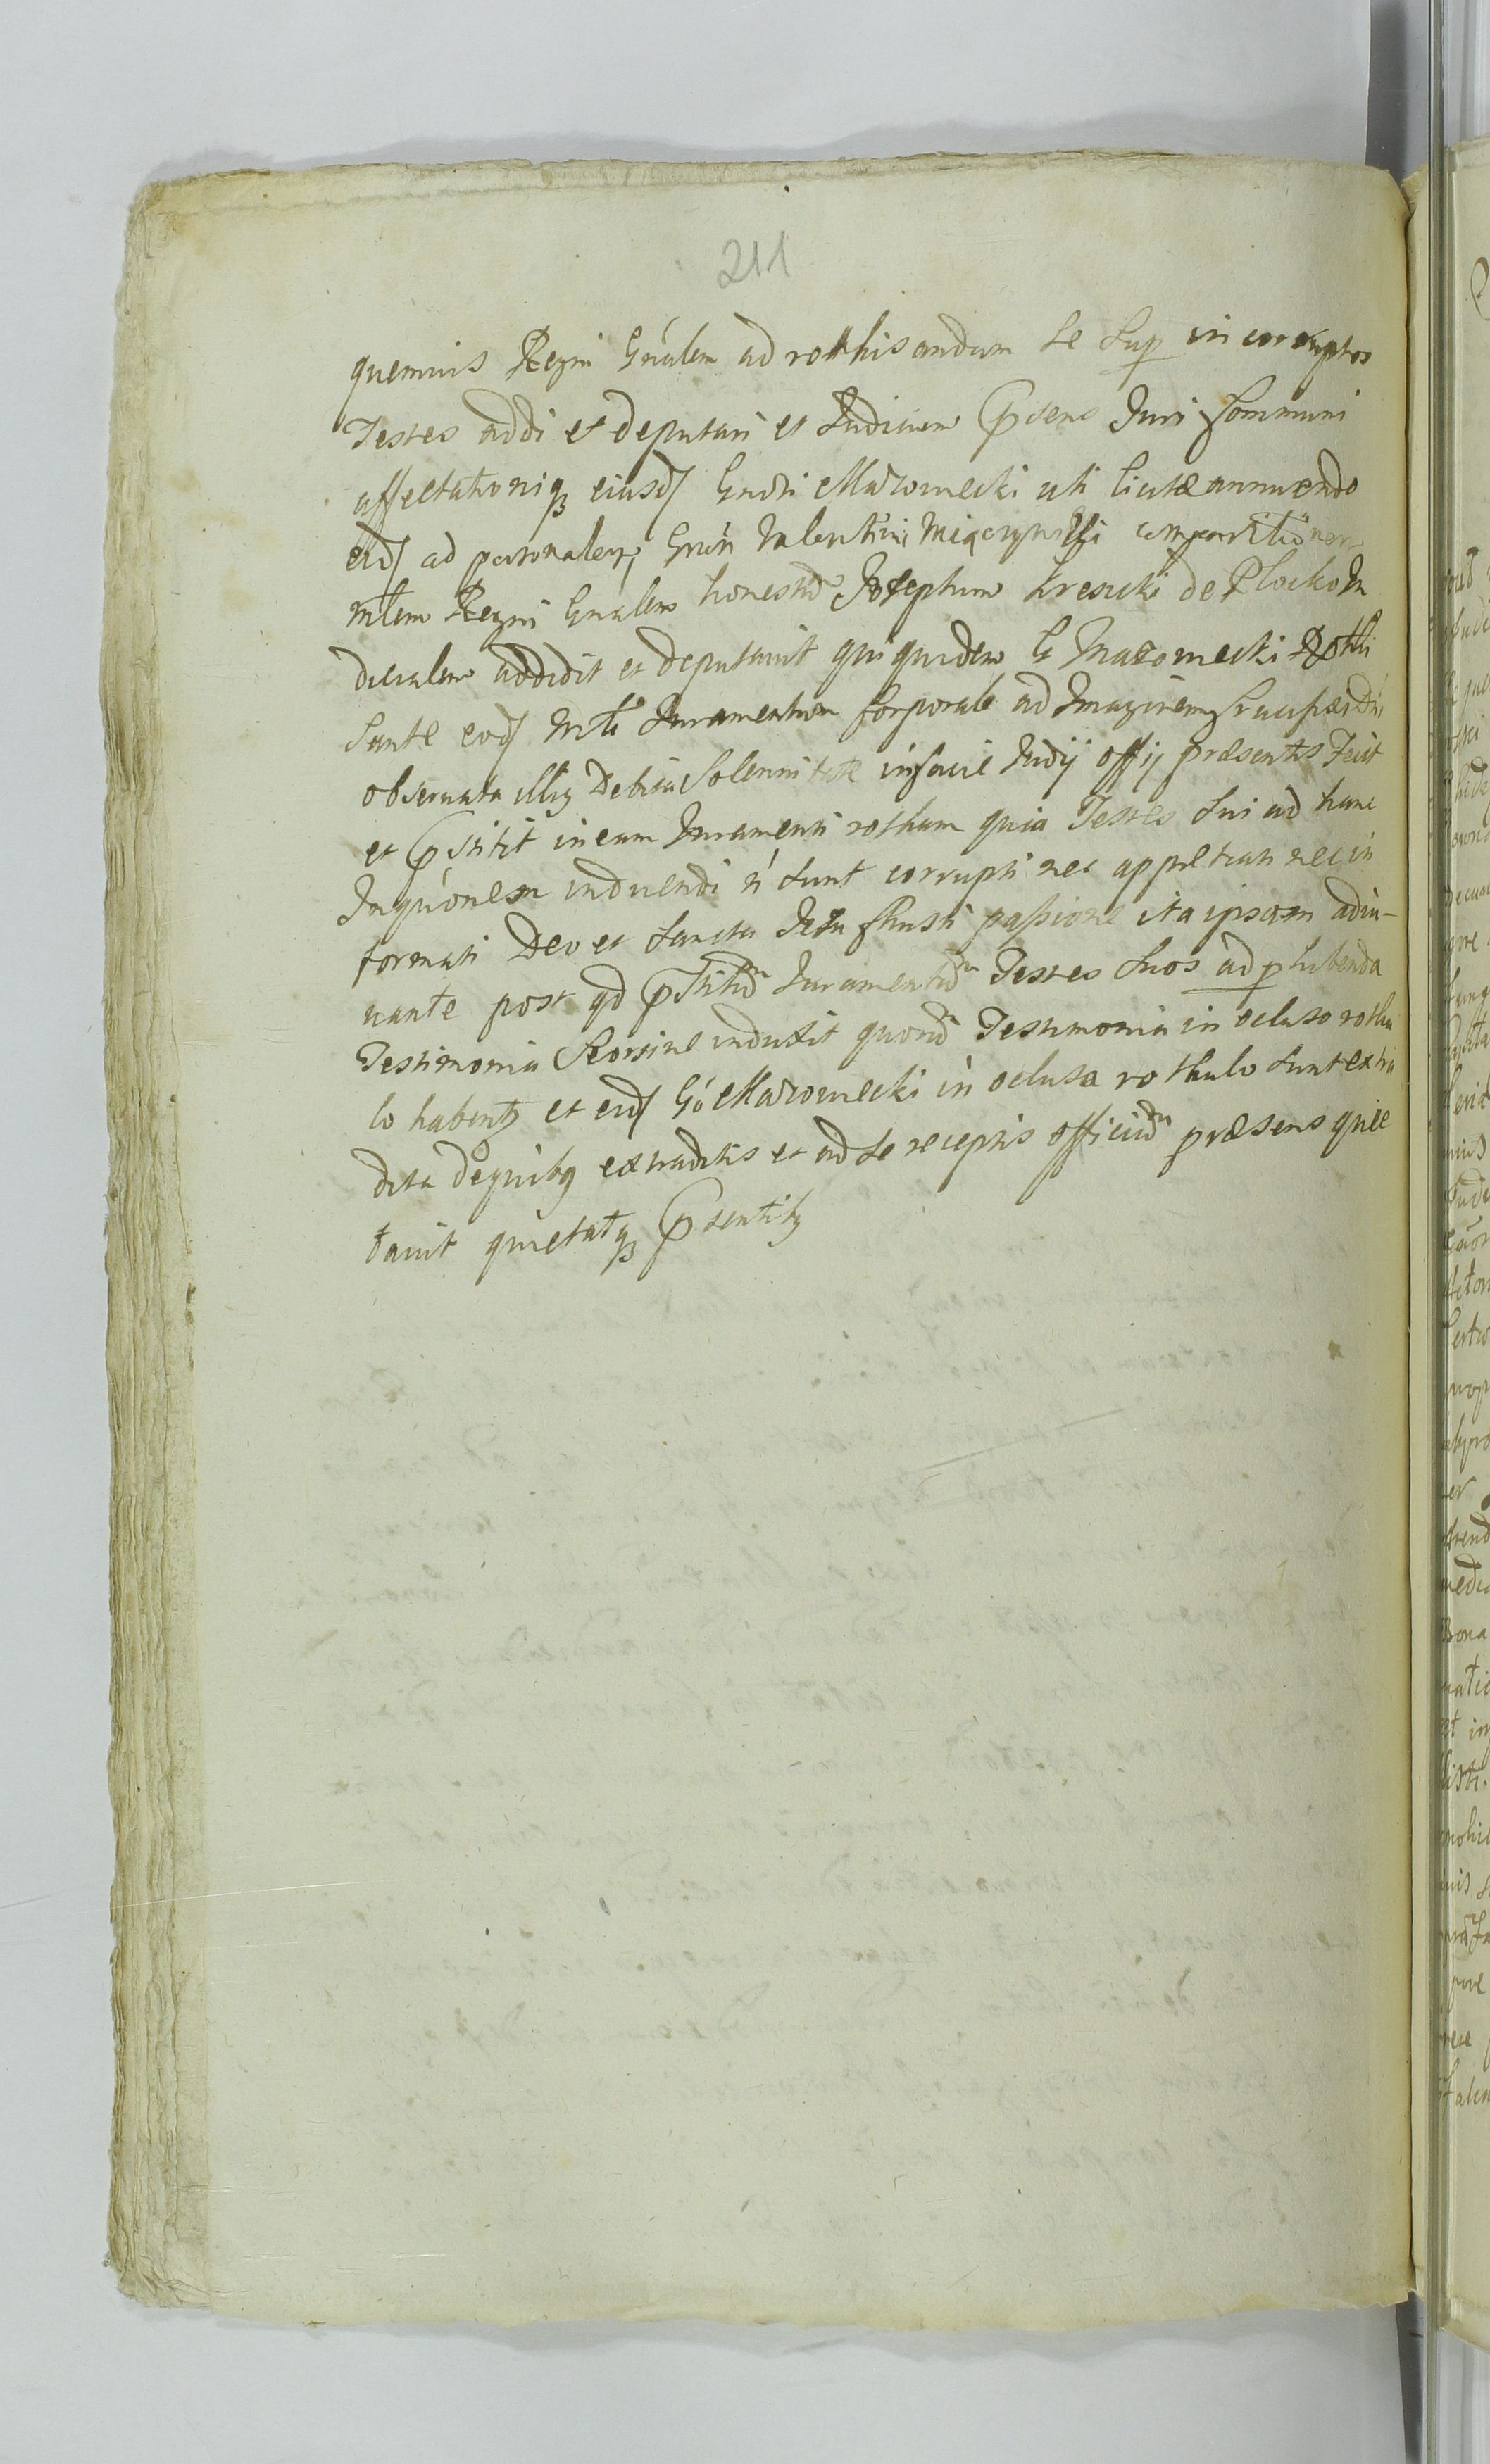 211
quemvis Regni Gnālem ad rothisandum se sup incorruptos
Testes addi et deputari et Judicium Psens Juri Communi
affectationiq eiusd Gndsi Mazowiecki uti licitæ annuendo
eid ad personalem Gnsi Valentini comparitionem
mlem Regni Gnalem honestu Josephum Kresicki de Plocko Ju
dicialem addidit et deputavit qui quidem G Mazowiecki Rothi
sante eod mli Juramentum Corporale ad Imaginem Crucifixi Dni
observata illiq Debita Solennitate in facie Judij offij præsentis Fecit
et Pstitit in eam Juramenti rotham quia Testes sui ad hanc
Inqūonem inducendi ń sunt corrupti nec appretiati nec in
formati Deo et Sancta Jesu Christi passione ita ipsam adiu-
vante post qd Pstitū Juramentū Testes suos ad phibenda
Testimonia Seorsive induxit quorū Testimonia in ocluso rothu
lo habentz et eid Gó Mazowiecki in ocluso rothulo sunt extra
dita dequibz extraditis et ad se receptis officiū præsens quie
tavit quietatq Psentibz